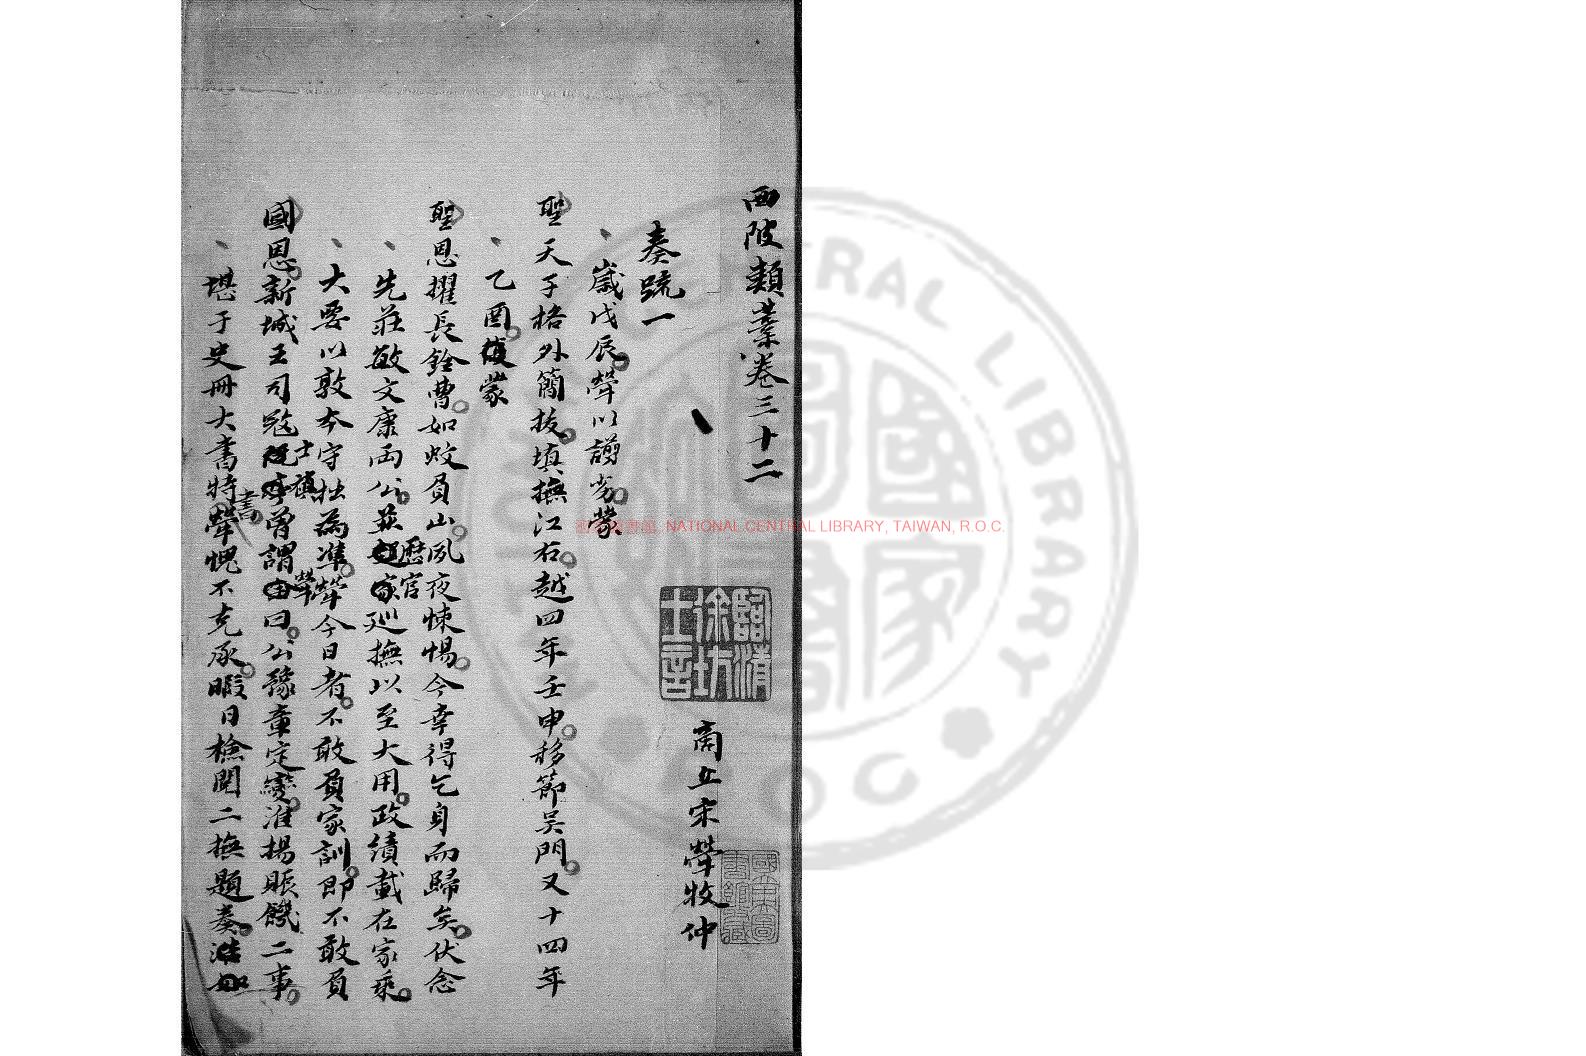 西陂類藁卷三十二
商丘宋犖牧仲
奏疏一
歲戊辰犖以譾劣蒙
聖天子格外簡拔填撫江右越四年壬申移節吳門又十四年
乙酉復蒙
聖恩擢長銓曹如蚊負山夙夜悚惕今幸得乞身而歸矣伏念
先莊敏文康兩公並歷官巡撫以至大用政績載在家乘
大要以敦本守拙為準犖今日者不敢負家訓即不敢負
國恩新城王司寇士禛曾謂犖曰公豫章定變淮揚賑饑二事
堪于史冊大書特書犖愧不克承暇日檢閱二撫題奏
臨清徐坊士言
國立中央圖書館藏
國家圖書館, NATIONAL CENTRAL LIBRARY, TAIWAN, R.O.C.
NATIONAL CENTRAL LIBRARY
ROC